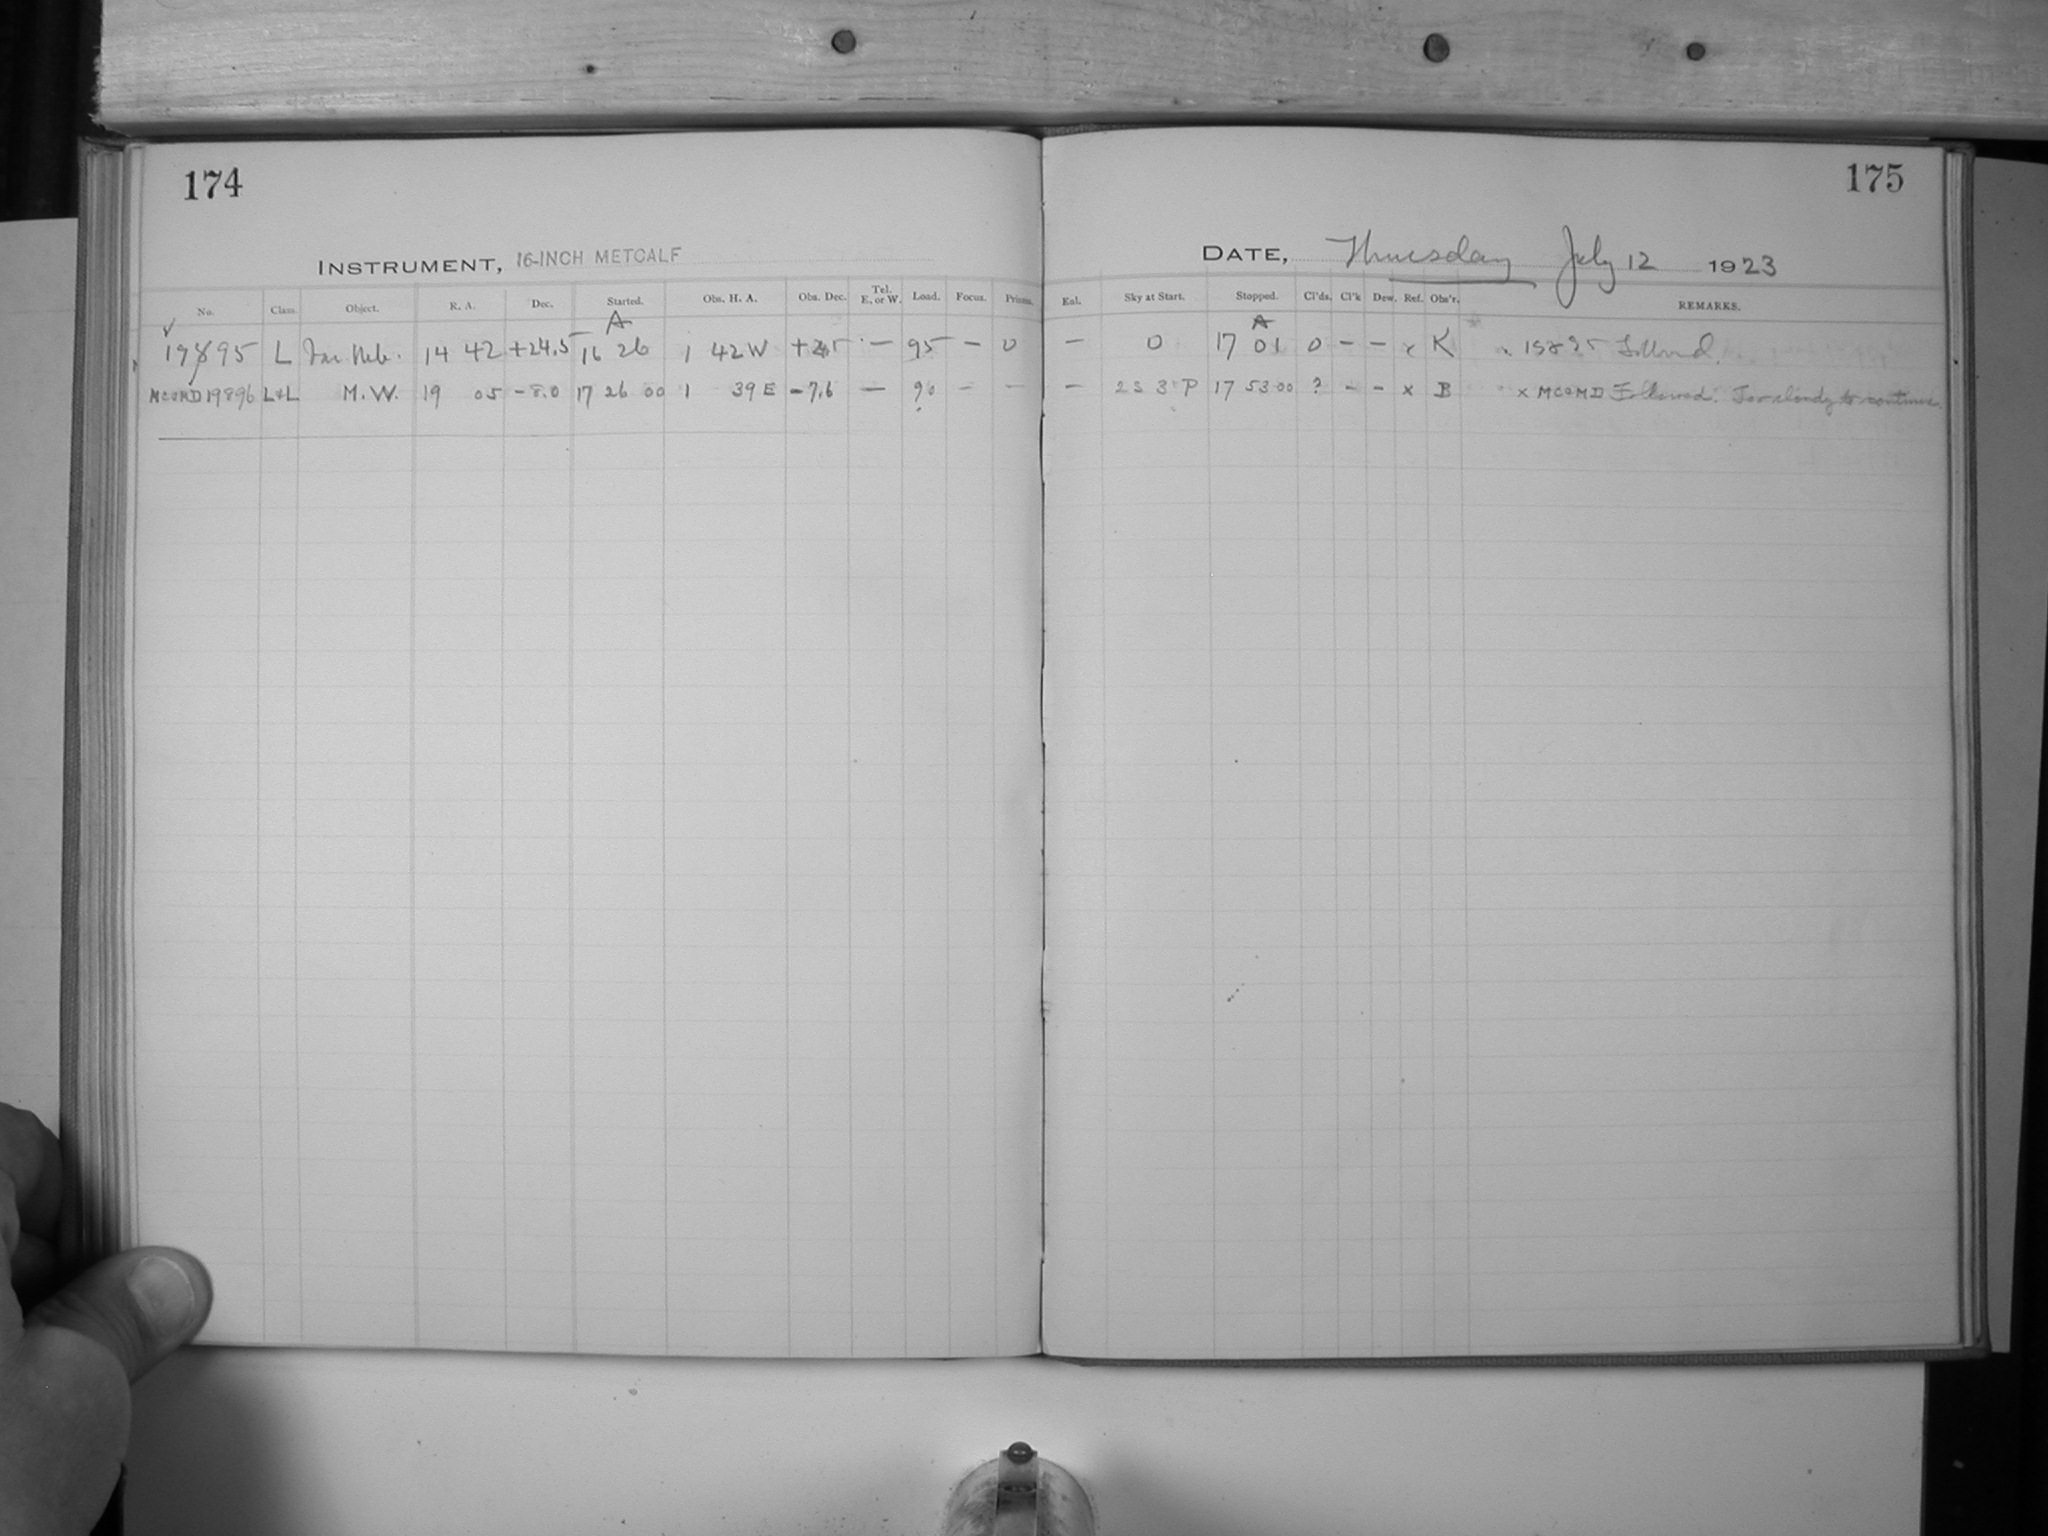 174
175
INSTRUMENT, 16-INCH METCALF
DATE, Thursday July 12 1923
No. Class. Object. R. A. Dec. Started. Obs. H. A. Obs. Dec. Tel. E. or W. Load. Focus. Prisms. Eal. Sky at Start. Stopped. Cl'ds. Cl'k Dew. Ref. Obs'r. REMARKS.
A A
19895 L Neb. 14 42 +24.5 16 26 1 42 W — 95 — 0 — 0 17 01 0 — — x K 19895 Followed.
MC&MD 19896 L&L M.W. 19 05 -8.0 17 26 00 1 39 E -7.6 — 90 — — — 2 S 3 P 17 53 00 ? — — x B x MC&MD Followed. Too cloudy to continue.